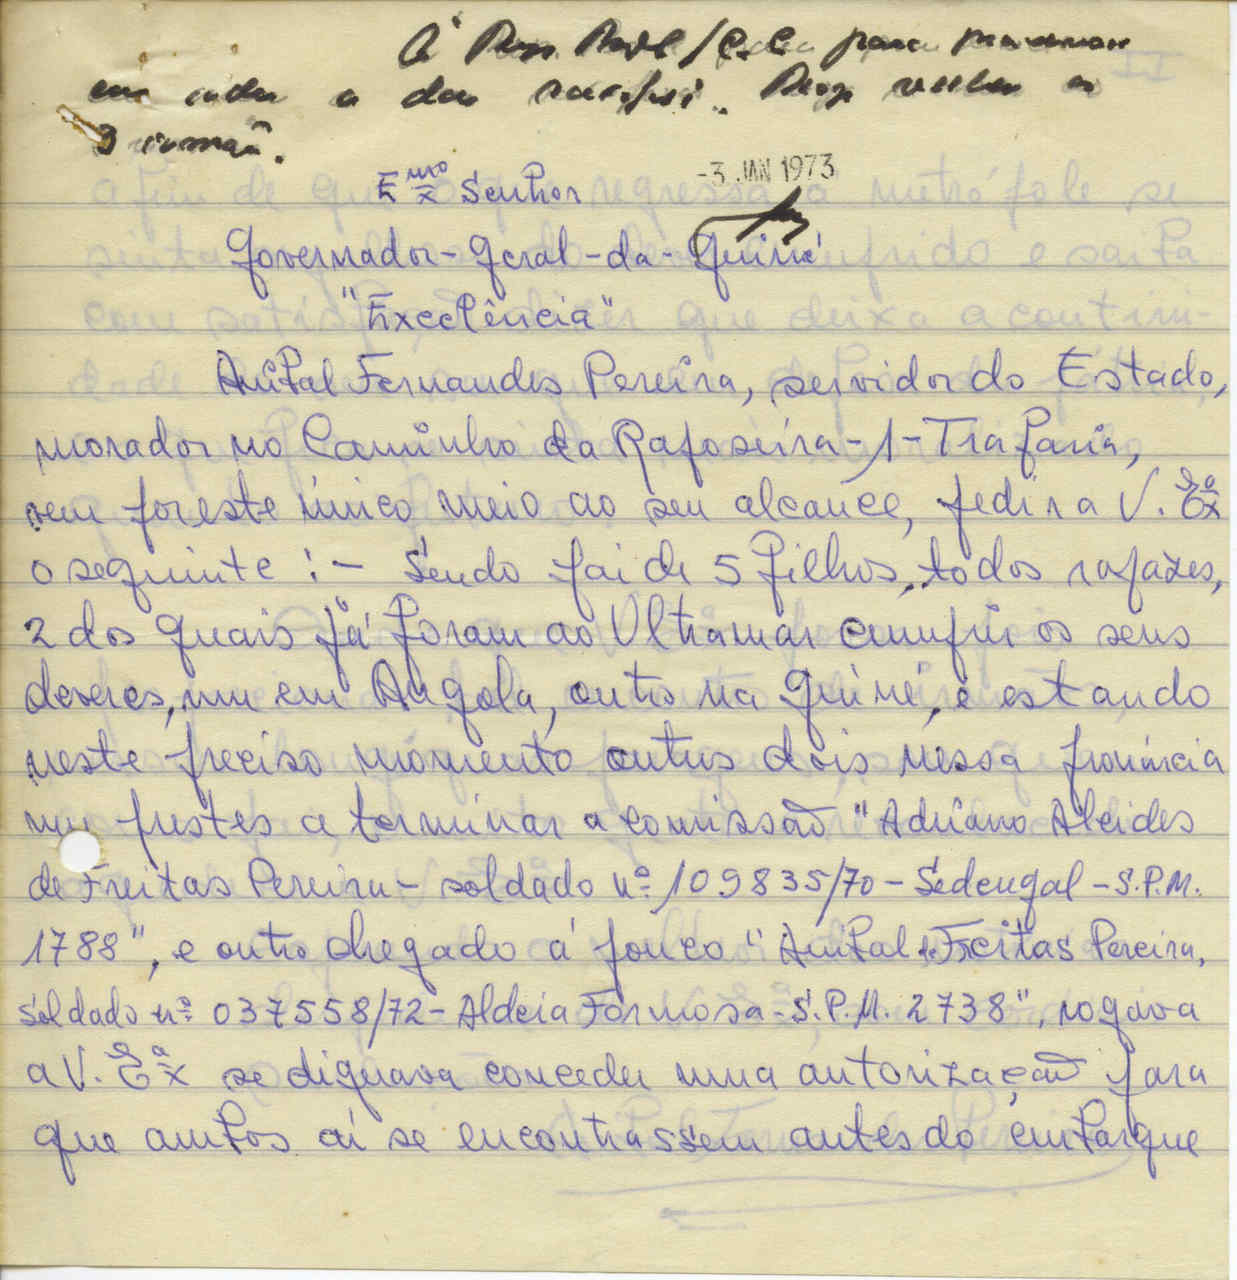 À Rep. /C.C. para
em a dar
3 irmão.
-3 JAN 1973
Exmo Senhor
Governador-Geral-da-Guiné
"Excelência"
Anibal Fernandes Pereira, servidor do Estado,
morador no Caminho da Raposeira-1-Trafaria,
vem por este único meio ao seu alcance, pedir a V. Exa
o seguinte :- Sendo pai de 5 filhos, todos rapazes,
2 dos quais já foram ao Ultramar cumprir os seus
deveres, um em Angola, outro na Guiné, e estando
neste preciso momento outros dois nessa província
um prestes a terminar a comissão "Adriano Alcides
de Freitas Pereira - soldado nº 109835/70 - Sedengal - S.P.M.
1788", e outro chegado á pouco "Anibal de Freitas Pereira,
Soldado nº 037558/72 - Aldeia Formosa - S.P.M. 2738", rogava
a V. Exa se dignava conceder uma autorização para
que ambos aí se encontrassem antes do embarque